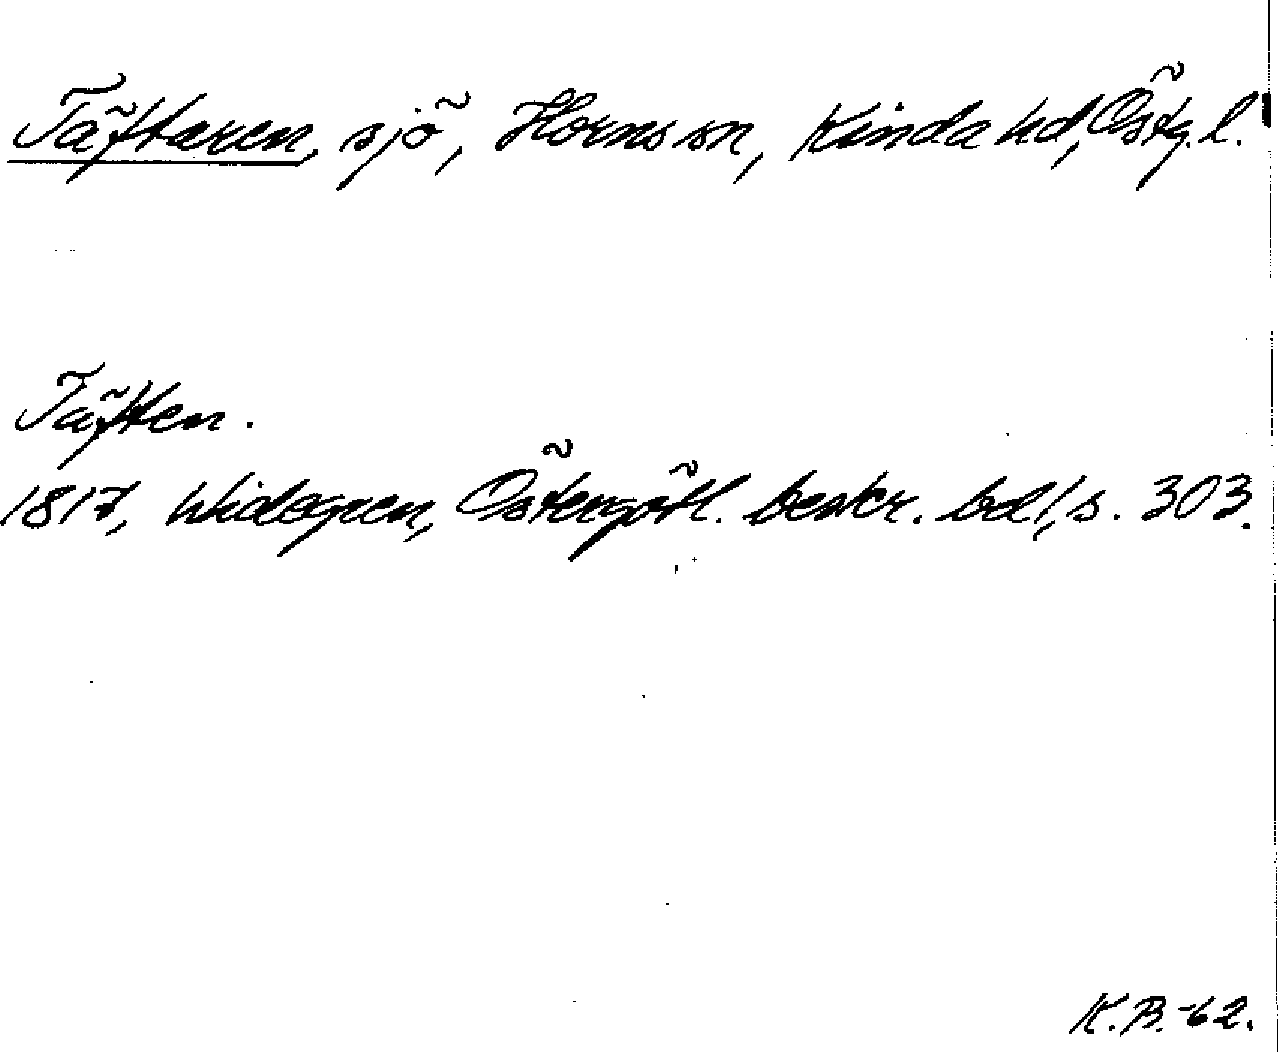 Täftaren, sjö, Horns sn, Kinda hd, Östg.l.
Täften.
1817, Widegren, Östergötl. beskr. bd 1, s. 303.
K.B.-62.